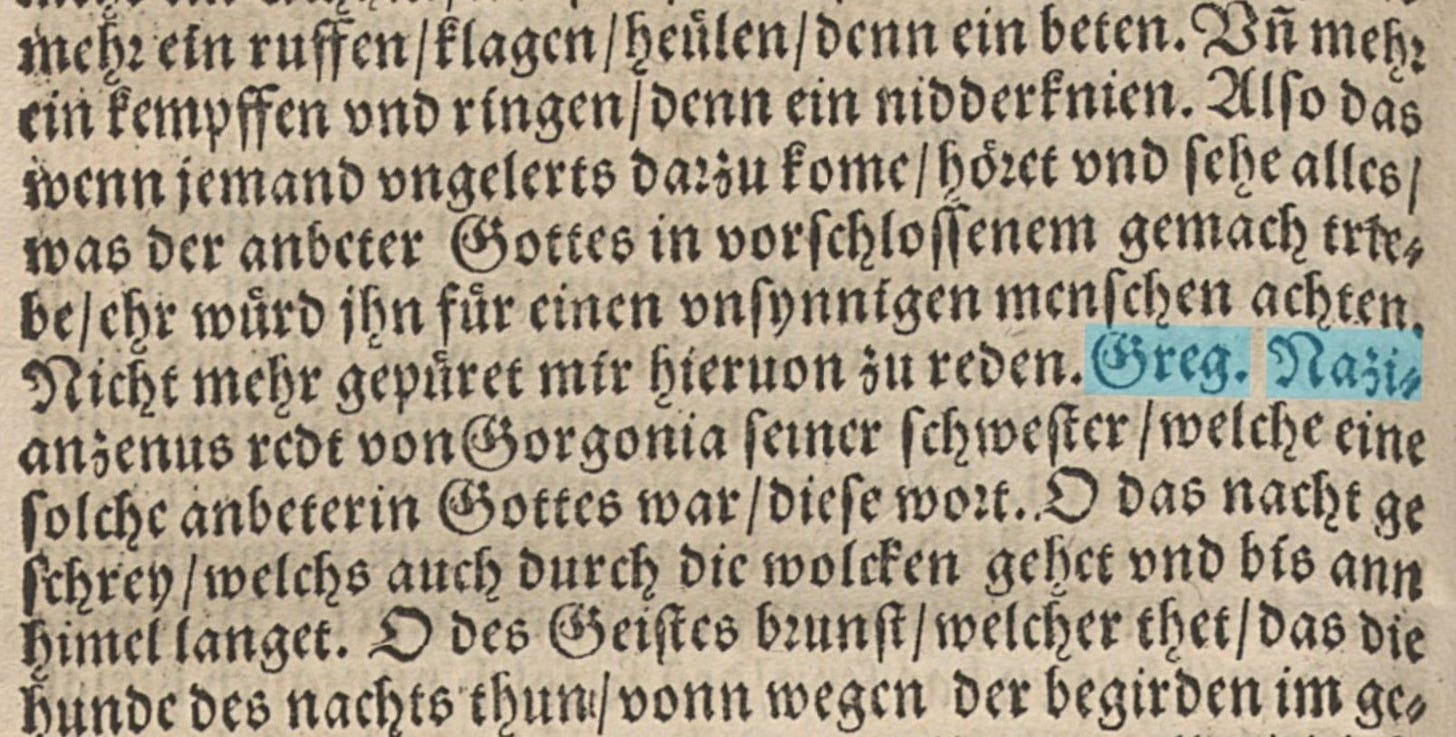 mehr ein ruffen/klagen/heülen/denn ein beten. Vñ mehr
ein kempffen vnd ringen/denn ein nidderknien. Also das
wenn jemand vngelerts darzu kome/höret vnd sehe alles/
was der anbeter Gottes in vorschlossenem gemach trie⸗
be/ehr würd jhn für einen vnsynnigen menschen achten.
Nicht mehr gepüret mir hieruon zu reden. Greg. Nazi⸗
anzenus redt von Gorgonia seiner schwester/welche eine
solche anbeterin Gottes war/diese wort. O das nacht ge
schrey/welchs auch durch die wolcken gehet vnd bis ann
himel langet. O des Geistes brunst/welcher thet/das die
hunde des nachts thun/vonn wegen der begirden im ge⸗